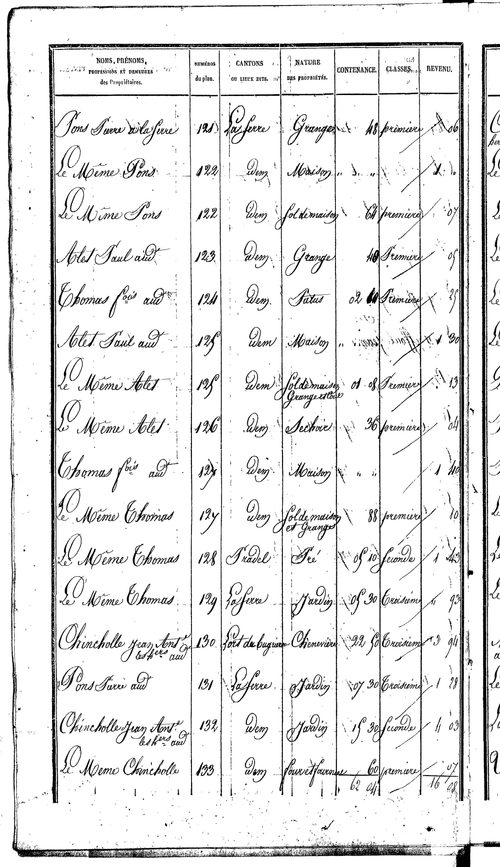 NOMS, PRÉNOMS, PROFESSIONS ET DEMEURES des Propriétaires. NUMÉROS du plan. CANTONS OU LIEUX DITS. NATURE DES PROPRIÉTÉS. CONTENANCE. CLASSES. REVENU.
Pons Pierre à la Serre 121 La Serre Grange 48 première 06
Le Même Pons 122 idem Maison " " 1 "
Le Même Pons 122 idem Sol de maison 64 première 07
Alet Paul aud. 123 idem Grange 40 Premiere 05
Thomas fois aud 124 idem Patus 02 40 Premiere 25
Alet Paul aud 125 idem Maison 1 30
Le Même Alet 125 idem Sol de maison Grange et Cour 01 08 Premiere 13
Le Même Alet 126 idem Sechoir 36 premiere 04
Thomas fois aud 127 idem Maison " " 1 40
Le Même Thomas 127 idem Sol de maison et Grange 88 premiere 10
Le Même Thomas 128 Pradel Pré 05 10 Seconde 1 43
Le Même Thomas 129 La Serre Jardin 05 30 Troisieme " 93
Chincholle Jean Ant. les hers aud 130 Cheneviere 22 50 Troisieme 3 94
Pons Pierre aud 131 La Serre Jardin 07 30 Troisieme 1 28
Chincholle Jean Ant. les hers aud 132 idem Jardin 15 30 Seconde 4 03
Le Même Chincholle 133 idem 60 premiere 07
62 04 16 08